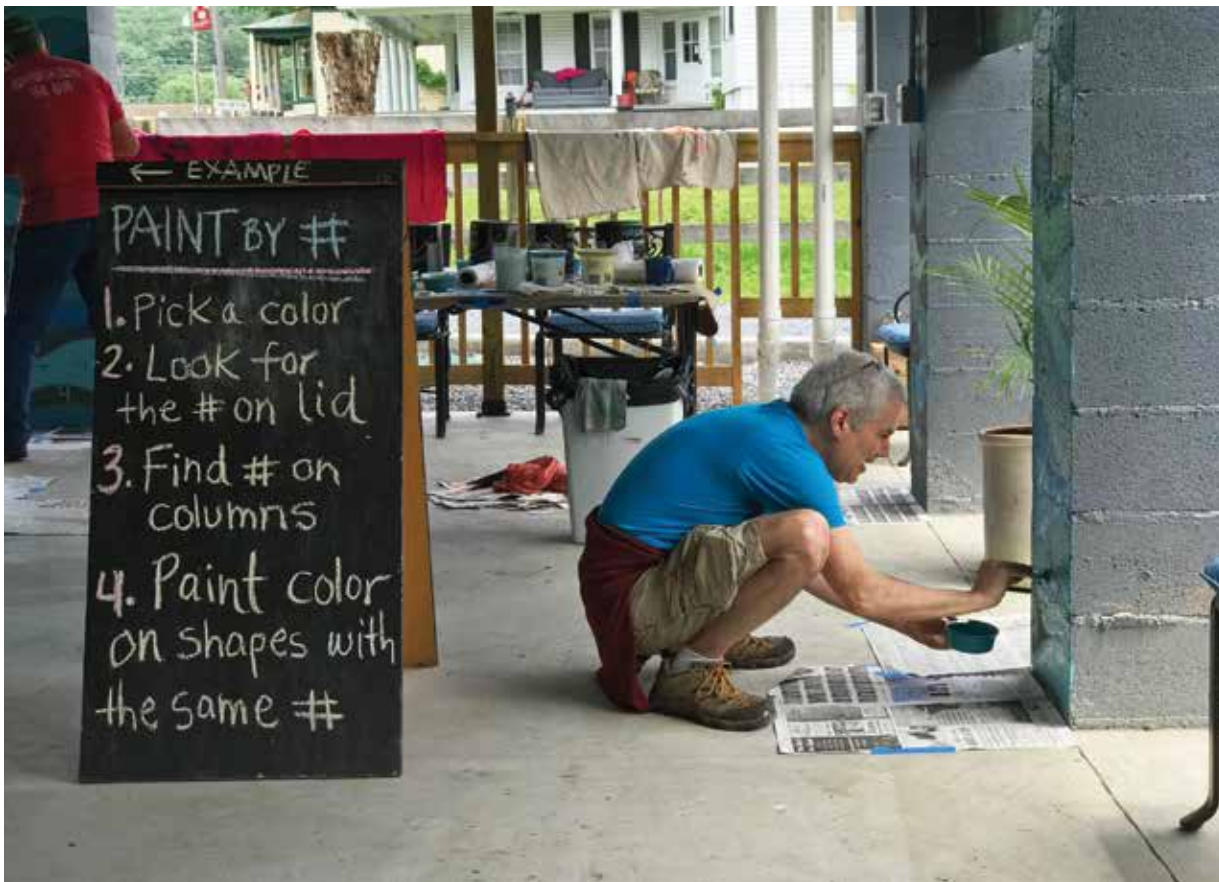 ← EXAMPLE
PAINT BY #
1. Pick a color
2. Look for
the # on lid
3. Find # on
columns
4. Paint color
on shapes with
the same #